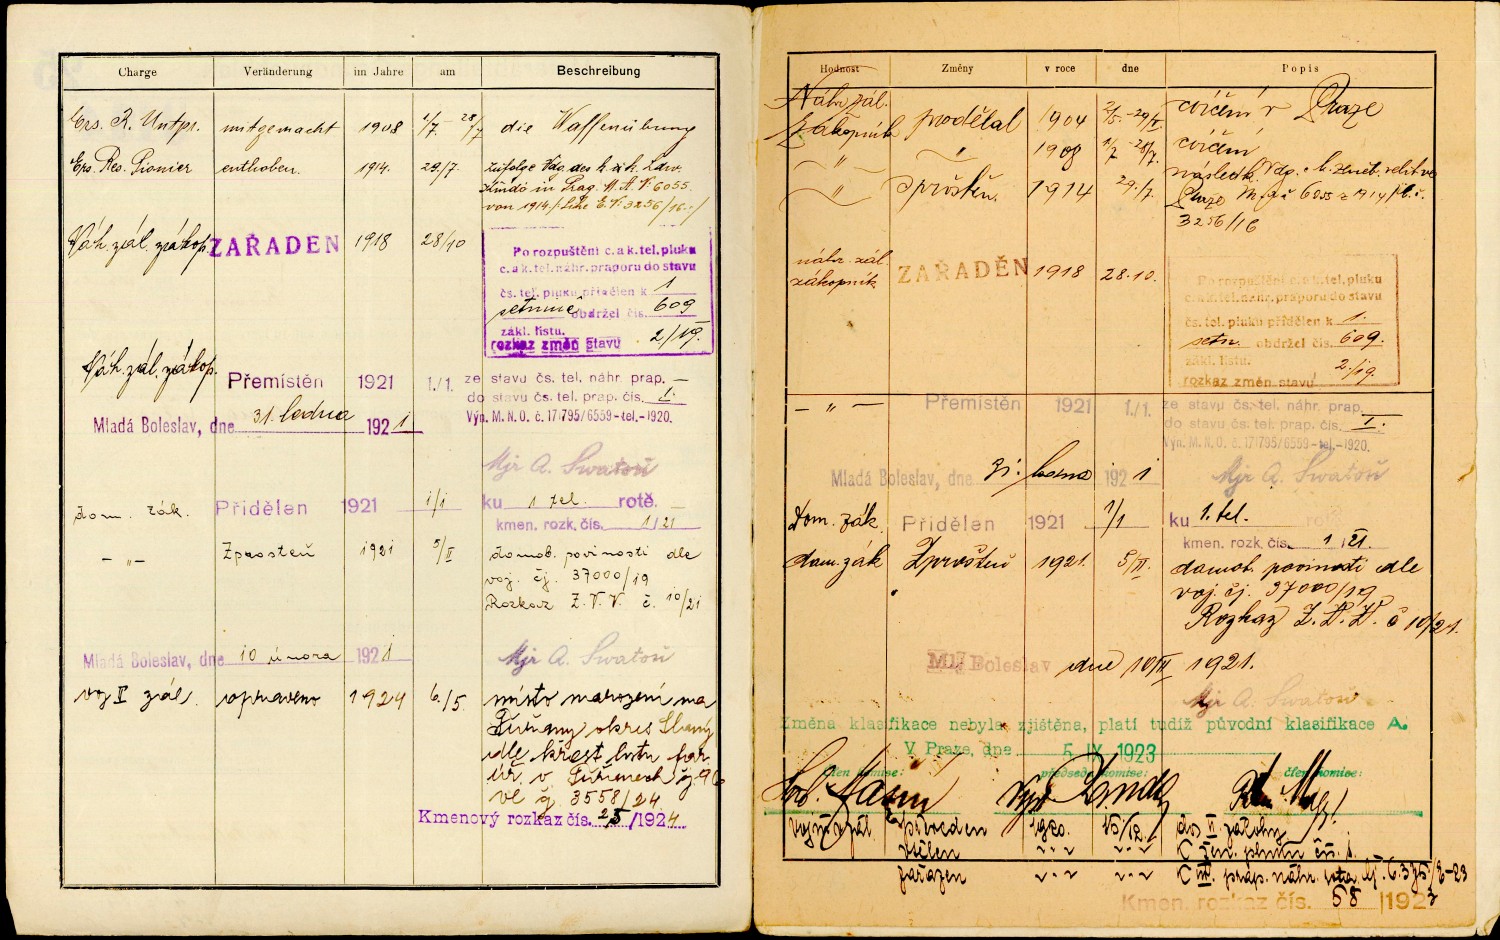 Charge Veränderung im Jahre am Beschreibung
Ers. R. Untpr. mitgemacht 1908 1/7 - 28/7 die Waffenübung
Ers. Res. Pionier enthoben. 1914. 29./7. zufolge Vdg. des k. u. k.
in Prag. M. A. No 6055
von 1914./: Siehe E. No 3256/16 :/
Náh. zál. zákop. ZAŘADĚN 1918 28/10
Po rozpuštění c. a k. tel. pluku
c. a k. tel. náhr. praporu do stavu
čs. tel. pluku přidělen k 1
setnině obdržel čís. 609
zákl. listu.
rozkaz změn stavu 2/19.
Náh. zál. zákop. Přemístěn 1921 1./1. ze stavu čs. tel. náhr. prap. —
do stavu čs. tel. prap. čís. I.
Mladá Boleslav, dne 31. ledna 1921 Výn. M. N. O. č. 171795/6559-tel.-1920.
Mjr A. Swatoň
dom. zák. Přidělen 1921 1/1 ku 1 tel. rotě.
kmen. rozk. čís. 1/21
— „ — Zproštěn 1921 5/II domob. povinosti dle
voj. čj. 37000/19
Rozkaz Z. V. V. č. 10/21
Mladá Boleslav, dne 10 února 1921 Mjr A. Swatoň
voj. II zál. opraveno 1924 6./5. místo narození na
Tuřany okres Slaný
dle křest. listu far.
úř. v Tuřanech čj. 96
čj. 3558/24.
Kmenový rozkaz čís. 25/1924
Hodnost Změny v roce dne Popis
Náhr. zál.
Zákopník prodělal 1904 2/5. - 29/5. cvičení v Praze
„ „ 1908 1/7 - 28/7. cvičení
„ Sproštěn. 1914 29./7. následk. Vdg.
Praze 6055 z 1914
3256/16
náhr. zál.
zákopník ZAŘADĚN 1918 28.10.
Po rozpuštění c. a k. tel. pluku
c. a k. tel. náhr. praporu do stavu
čs. tel. pluku přidělen k 1.
setn. obdržel čís. 609.
zákl. listu.
rozkaz změn stavu 2./19.
— „ — Přemístěn 1921 1./1. ze stavu čs. tel. náhr. prap.
do stavu čs. tel. prap. čís. I.
Výn. M. N. O. č. 171795/6559-tel.-1920.
Mladá Boleslav, dne 31. ledna 1921 Mjr A. Swatoň
Dom. zák. Přidělen 1921 1/1 ku 1. tel. rotě
kmen. rozk. čís. 1/21.
dom. zák Zproštěn 1921. 5/II. domob. povinosti dle
voj. čj. 37000/19
Rozkaz Z. V. V. č 10/21.
Boleslav dne 10/II 1921.
Mjr A. Swatoň
Změna klasifikace nebyla zjištěna, platí tudíž původní klasifikace A.
V Praze, dne 5 IX 1923
člen komise: předseda komise: člen komise:
převeden 1920. 15./12. do II. zálohy
vtělen „ . „ „ . „ čís. 1.
zařazen „ . „ „ . „ náhr. rota
Kmen. rozkaz čís. 58 /1923